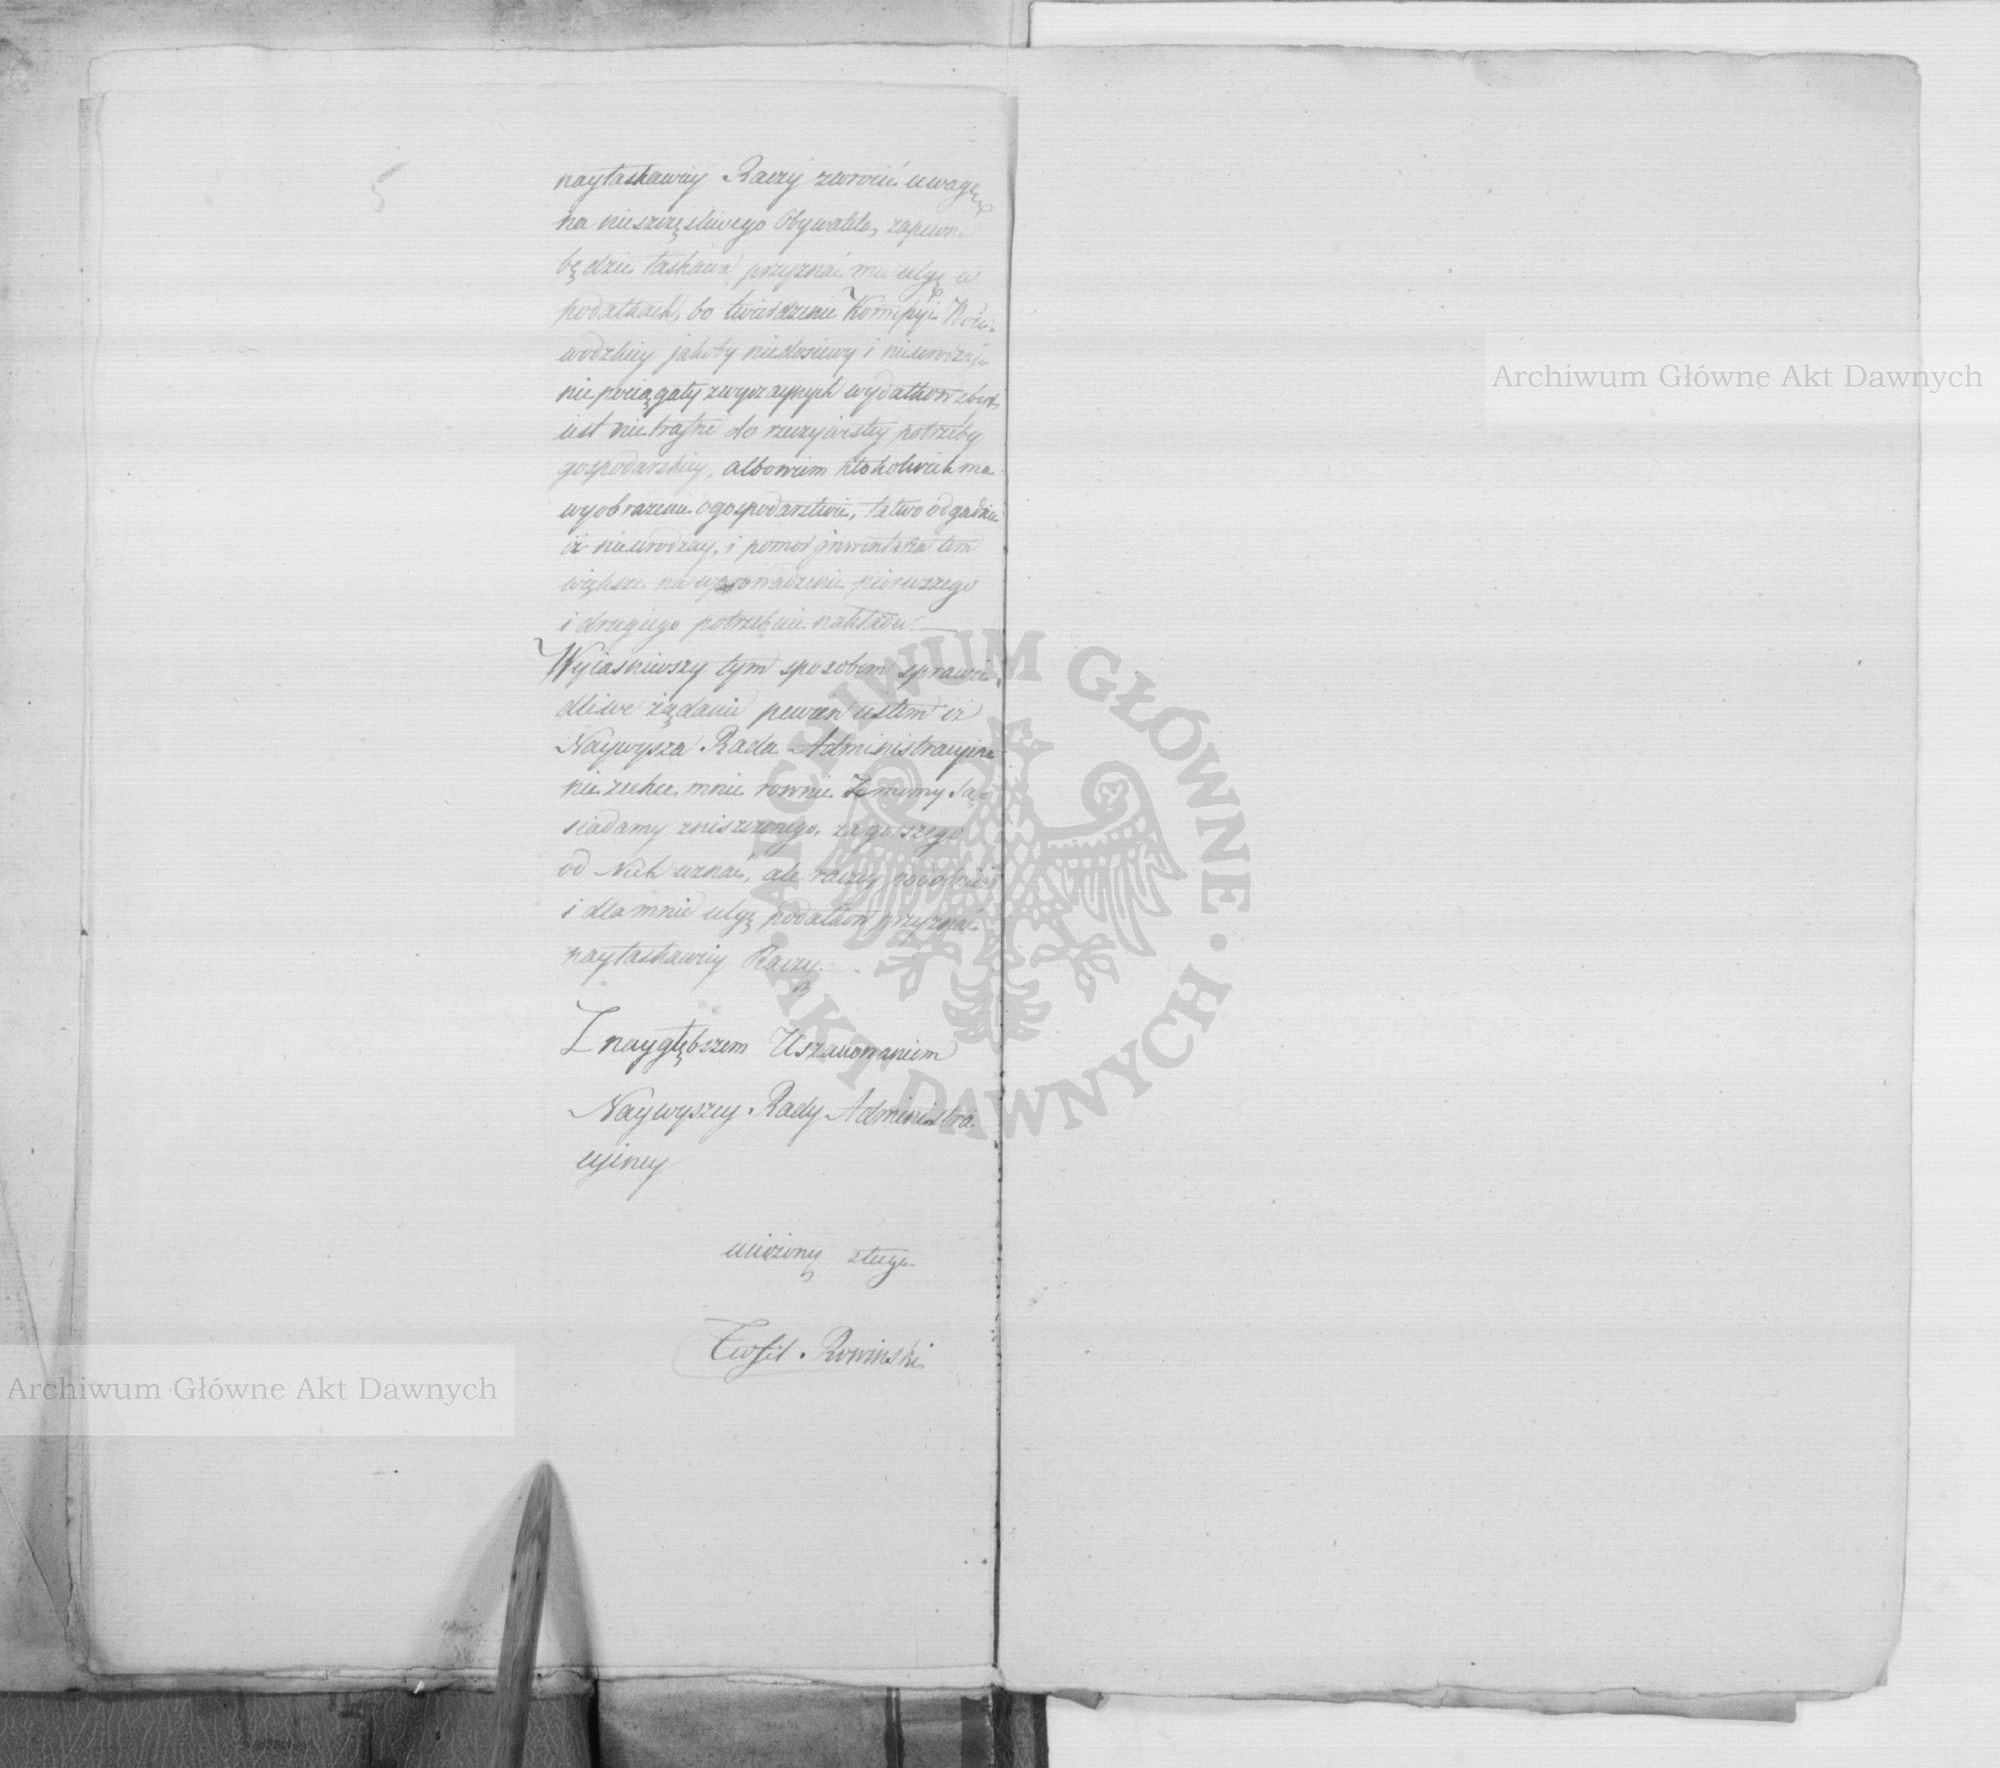 nayłaskawiey Raczy zwrocić uwagę
na nieszczęsliwego Obywatela, zapewne
będzie łaskawa przyznać mu ulgę w
podatkach, bo twierdzenie Kommissyi Woie-
wodzkiey jakoby niedosiewy i nieurodzaje
nie pociągały zwyczaynych wydatkow
iest nie trafne do rzeczywistey potrzeby
gospodarskiey, albowiem ktokolwiek ma
wyobrażenie o gospodarstwie, łatwo odgadnie
iż nieurodzay, i pomor jnwentarza tem
większe na wprowadzenie pierwszego
i drugiego potrzebuie nakładu. —
Wyiasniwszy tym sposobem sprawie-
dliwe żądanie pewien iestem iż
Naywyższa Rada Administracyina
nie zechce mnie rownie z memy Są-
siadamy zniszczonego, za gorszego
od Nich uznać, ale raczey podobnież
i dla mnie ulgę podatkow przyznać
nayłaskawiey Raczy.
Z naygłębszem Uszanowaniem
Naywyszey Rady Administra
cyiney
uniżony sługa
Teofil Rowinski
Archiwum Główne Akt Dawnych
Archiwum Główne Akt Dawnych
ARCHIWUM GŁÓWNE
AKT DAWNYCH